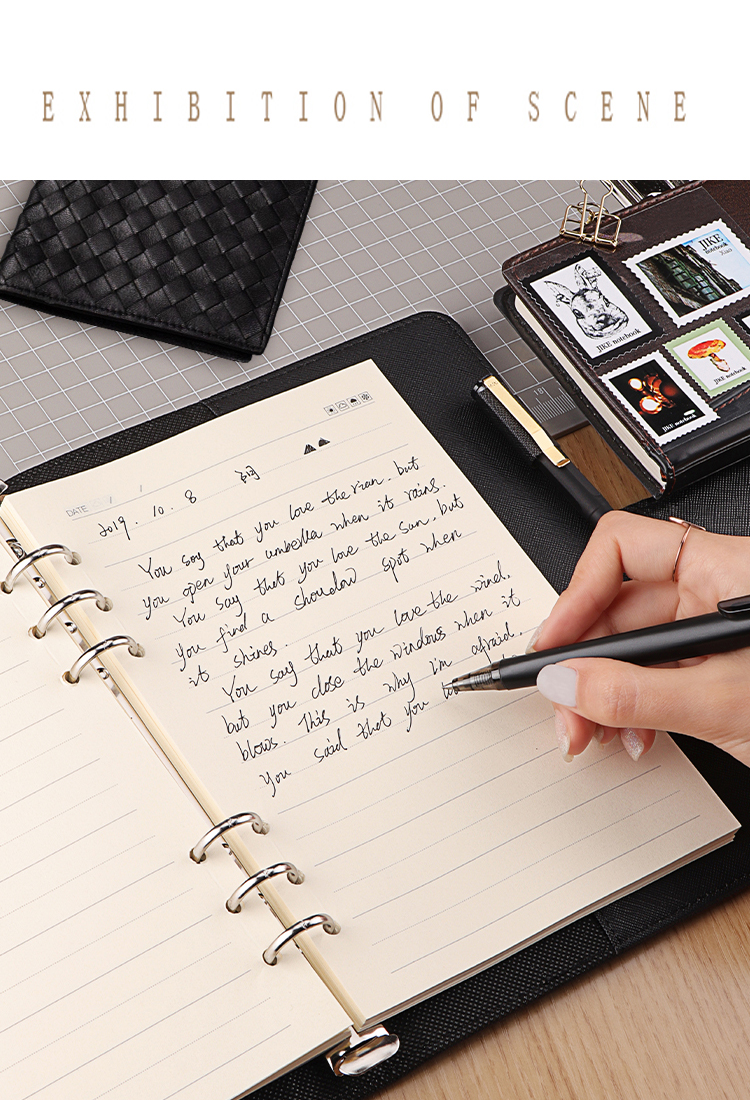 EXHIBITION OF SCENE
JIKE
Notebook
Xiao
JIKE notebook
JIKE notebook
JIKE notebook
18
DATE / /
2019. 10. 8
You say that you love the rian. but
you open your umberlla when it rains.
You say that you love the sun, but
you find a shoudow spot when
it shines.
You say that you love the wind,
but you close the windows when it
blows. This is why i'm afraid.
You said that you